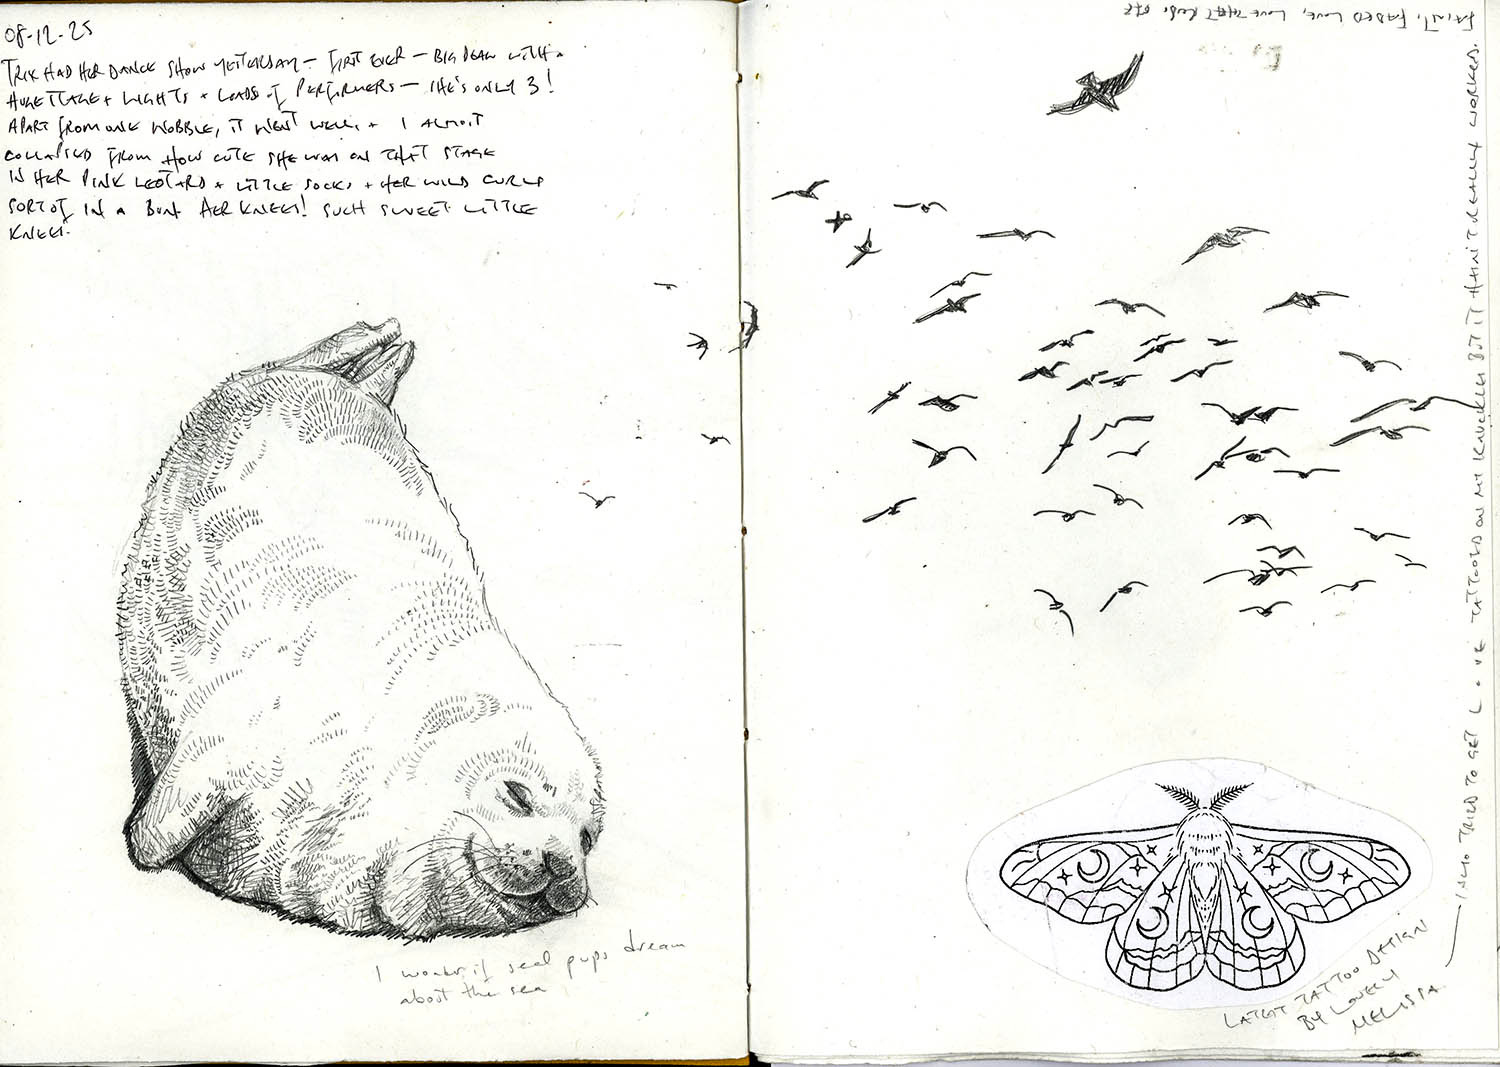 08-12-25
TRIX HAD HER DANCE SHOW YESTERDAY - FIRST EVER - BIG DEAL WITH A
HUGE STAGE + LIGHTS + LOADS OF PERFORMERS - SHE'S ONLY 3!
APART FROM ONE WOBBLE, IT WENT WELL, + I ALMOST
COLLAPSED FROM HOW CUTE SHE WAS ON THAT STAGE
IN HER PINK LEOTARD + LITTLE SOCKS + HER WILD CURLS
SORT OF IN A BUN. HER KNEES! SUCH SWEET LITTLE
KNEES.
I wonder if seal pups dream
about the sea
LATEST TATTOO DESIGN
BY LOVELY
MELISSA
I ALSO TRIED TO GET LOVE TATTOOED ON MY KNUCKLES BUT IT HASN'T REALLY WORKED.
FAINT, FADED LOVE, LOVE THAT RUBS OFF